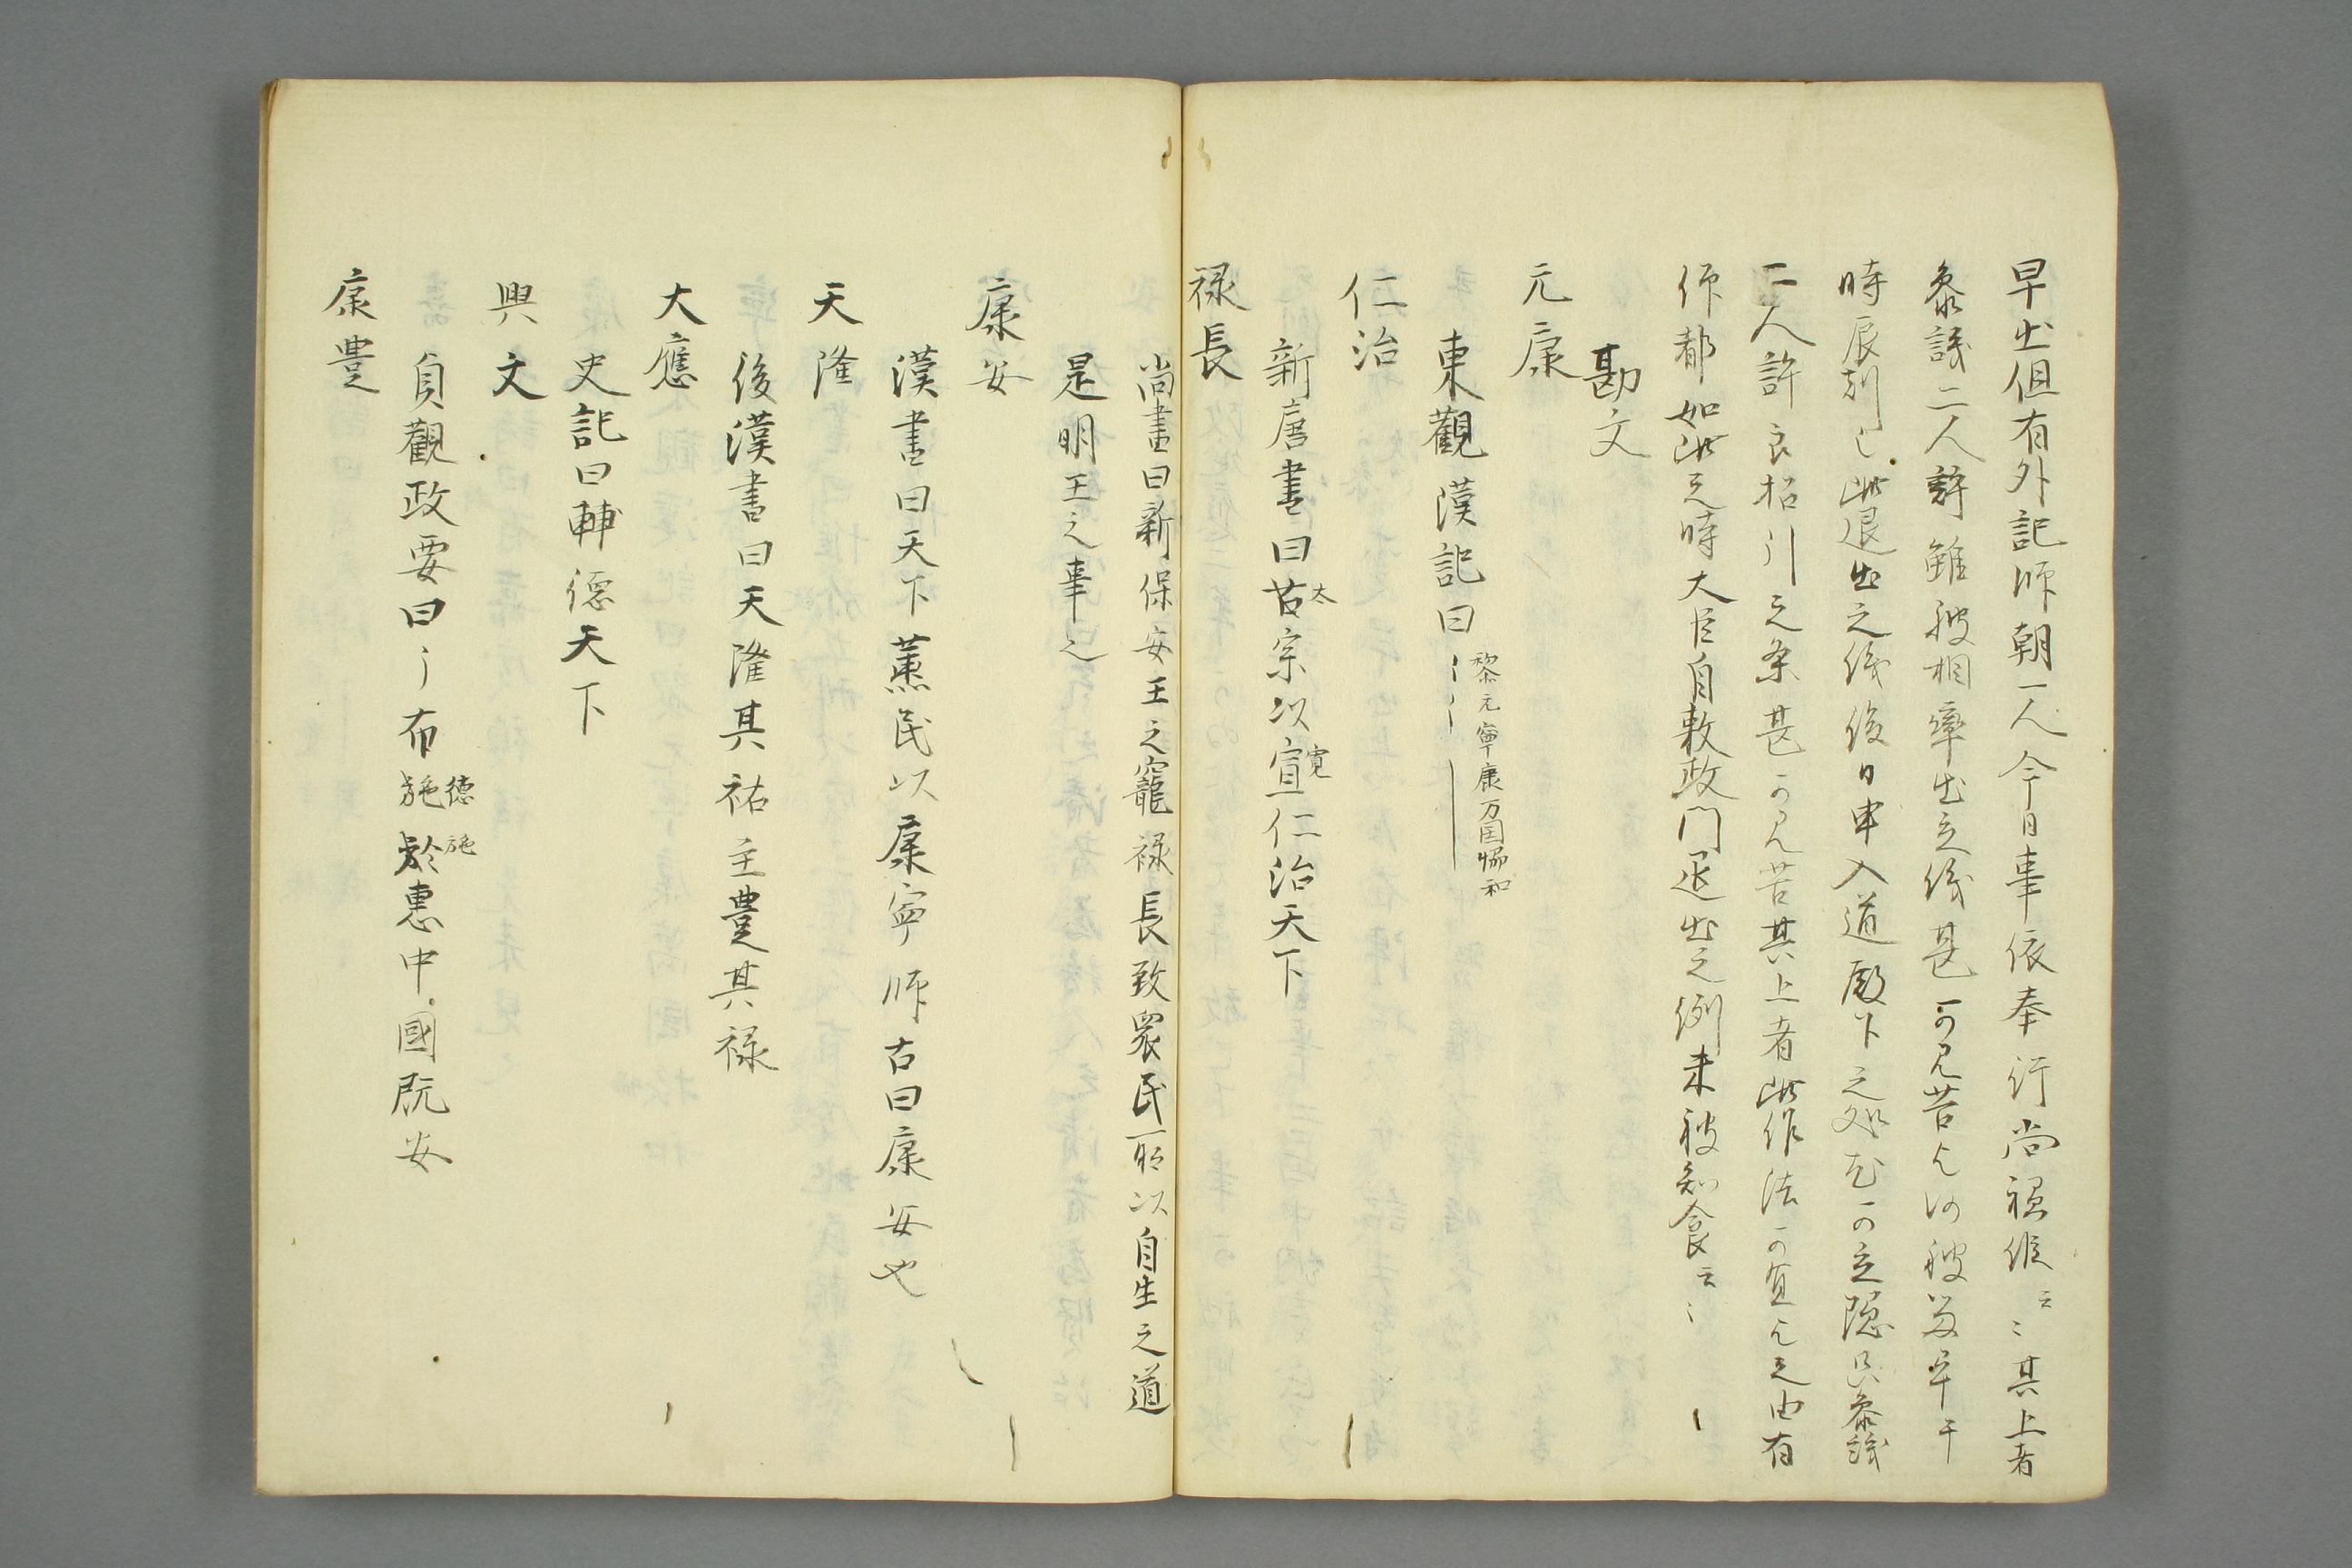 早出但有外記師朝一人今日事依奉行尚祗候云〻其上者
参議二人許雖被相率出立後甚可見苦也何被
時辰刻此退出之後後日申入道殿下之処尤可立隠只参議
二人許召招引之条甚可見苦其上者此作法可宜也之由有
仰都如此之時大臣自敷政門退出之例未被知食云〻
勘文
元康
東觀漢記曰〻〻
黎元寧康万国協和
仁治
新唐書曰古宗以宣仁治天下
太
寛
禄長
尚書曰新保安王之寵禄長致衆民所以自生之道
是明王之事之
康安
漢書曰天下薫民以康寧師古曰康安也
天隆
後漢書曰天隆其祐主豊其禄
大應
史記曰輔德天下
興文
貞觀政要曰〻布施於惠中國既安
德施
康豊